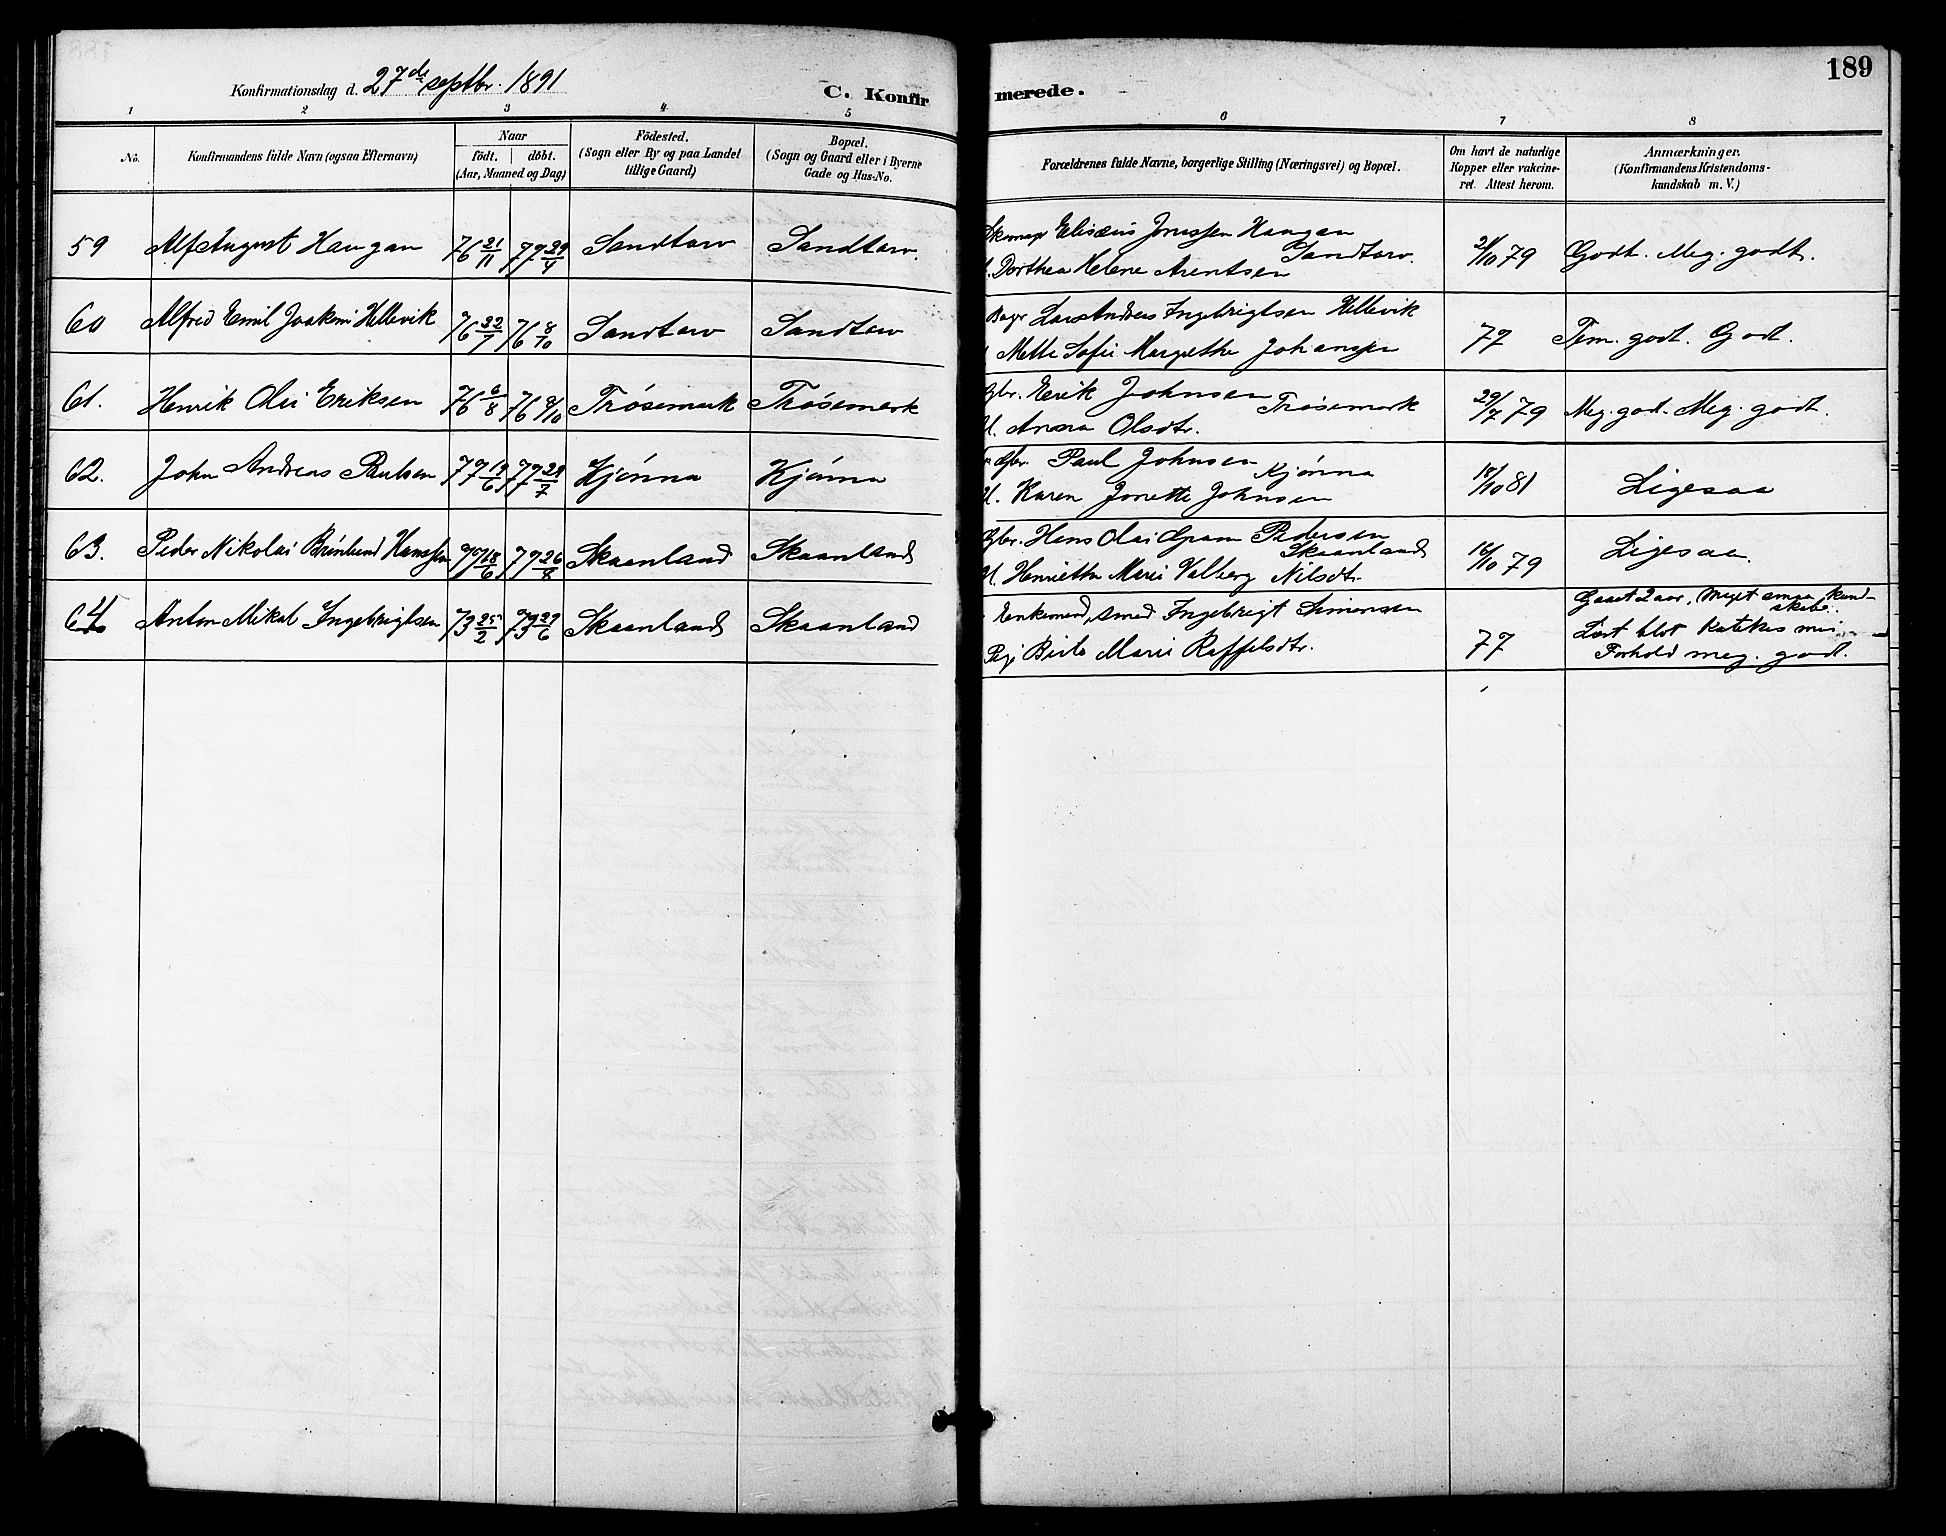 189
Konfirmationsdag d. 27de septbr. 1891
C. Konfirmerede.
1 2 3 4 5 6 7 8
No.
Konfirmandens fulde Navn (ogsaa Efternavn)
Naar
födt. döbt.
(Aar, Maaned og Dag)
Födested.
(Sogn eller By og paa Landet
tillige Gaard)
Bopæl.
(Sogn og Gaard eller i Byerne
Gade og Hus-No.
Forældrenes fulde Navne, borgerlige Stilling (Næringsvei) og Bopæl.
Om havt de naturlige
Kopper eller vakcine-
ret. Attest herom.
Anmærkninger.
(Konfirmandens Kristendoms-
kundskab m. V.)
59 Alf August Haugan 76 21/11 77 29/4 Sandtorv Sandtorv.
Skomagr Elisæus Jonassen Haugan
Sandtorv.
Dorthea Helene Arentsen
21/10 79 Godt. Meg. godt.
60 Alfred Emil Joakim Hellevik 76 22/7 76 8/10 Sandtorv Sandtorv
Bagr Lars Andreas Ingebrigtsen Hellevik
Mette Sofie Margrethe Johansen
77 Tem. godt. Godt.
61. Henrik Olai Eriksen 76 6/8 76 8/10 Trøsemark Trøsemark
Gbr. Erik Johnsen
Trøsemark
H. Anna Olsdtr.
29/7 79 Meg. god. Meg. godt.
62. John Andreas Paulsen 77 /6 77 /7 Kjønna Kjønna
Gbr. Paul Johnsen
Kjønna
H. Karen Jonette Johnsen
18/10 81 Ligesaa
63. Peder Nikolai Brinlund Hanssen 77 18/6 77 26/8 Skaanland Skaanland
Gbr. Hans Olai Gram Pedersen
Skaanland
H. Henrietta Marie Valberg Nilsdtr.
16/10 79 Ligesaa.
64 Anton Mikal Ingebrigtsen 73 25/2 73 29/6 Skaanland Skaanland
Enkemand, smed Ingebrigt Simonsen
Pige Berte Marie Raffelsdtr.
77
Gaaet 2 aar, meget smaa kund-
skabe.
Lært blot Katekis
Forhold meg. godt.